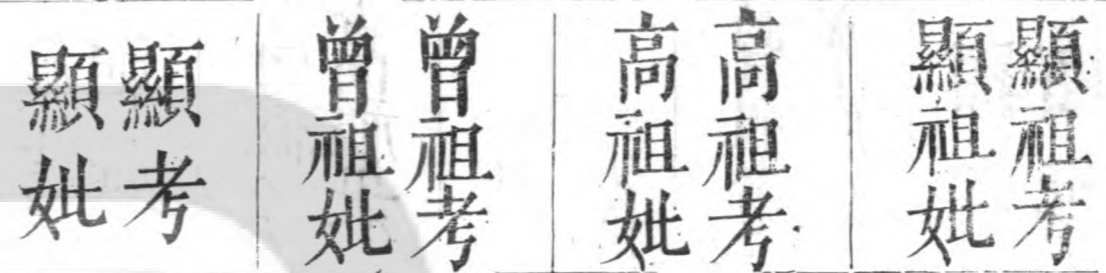 顯祖考
顯祖妣
高祖考
高祖妣
曾祖考
曾祖妣
顯考
顯妣